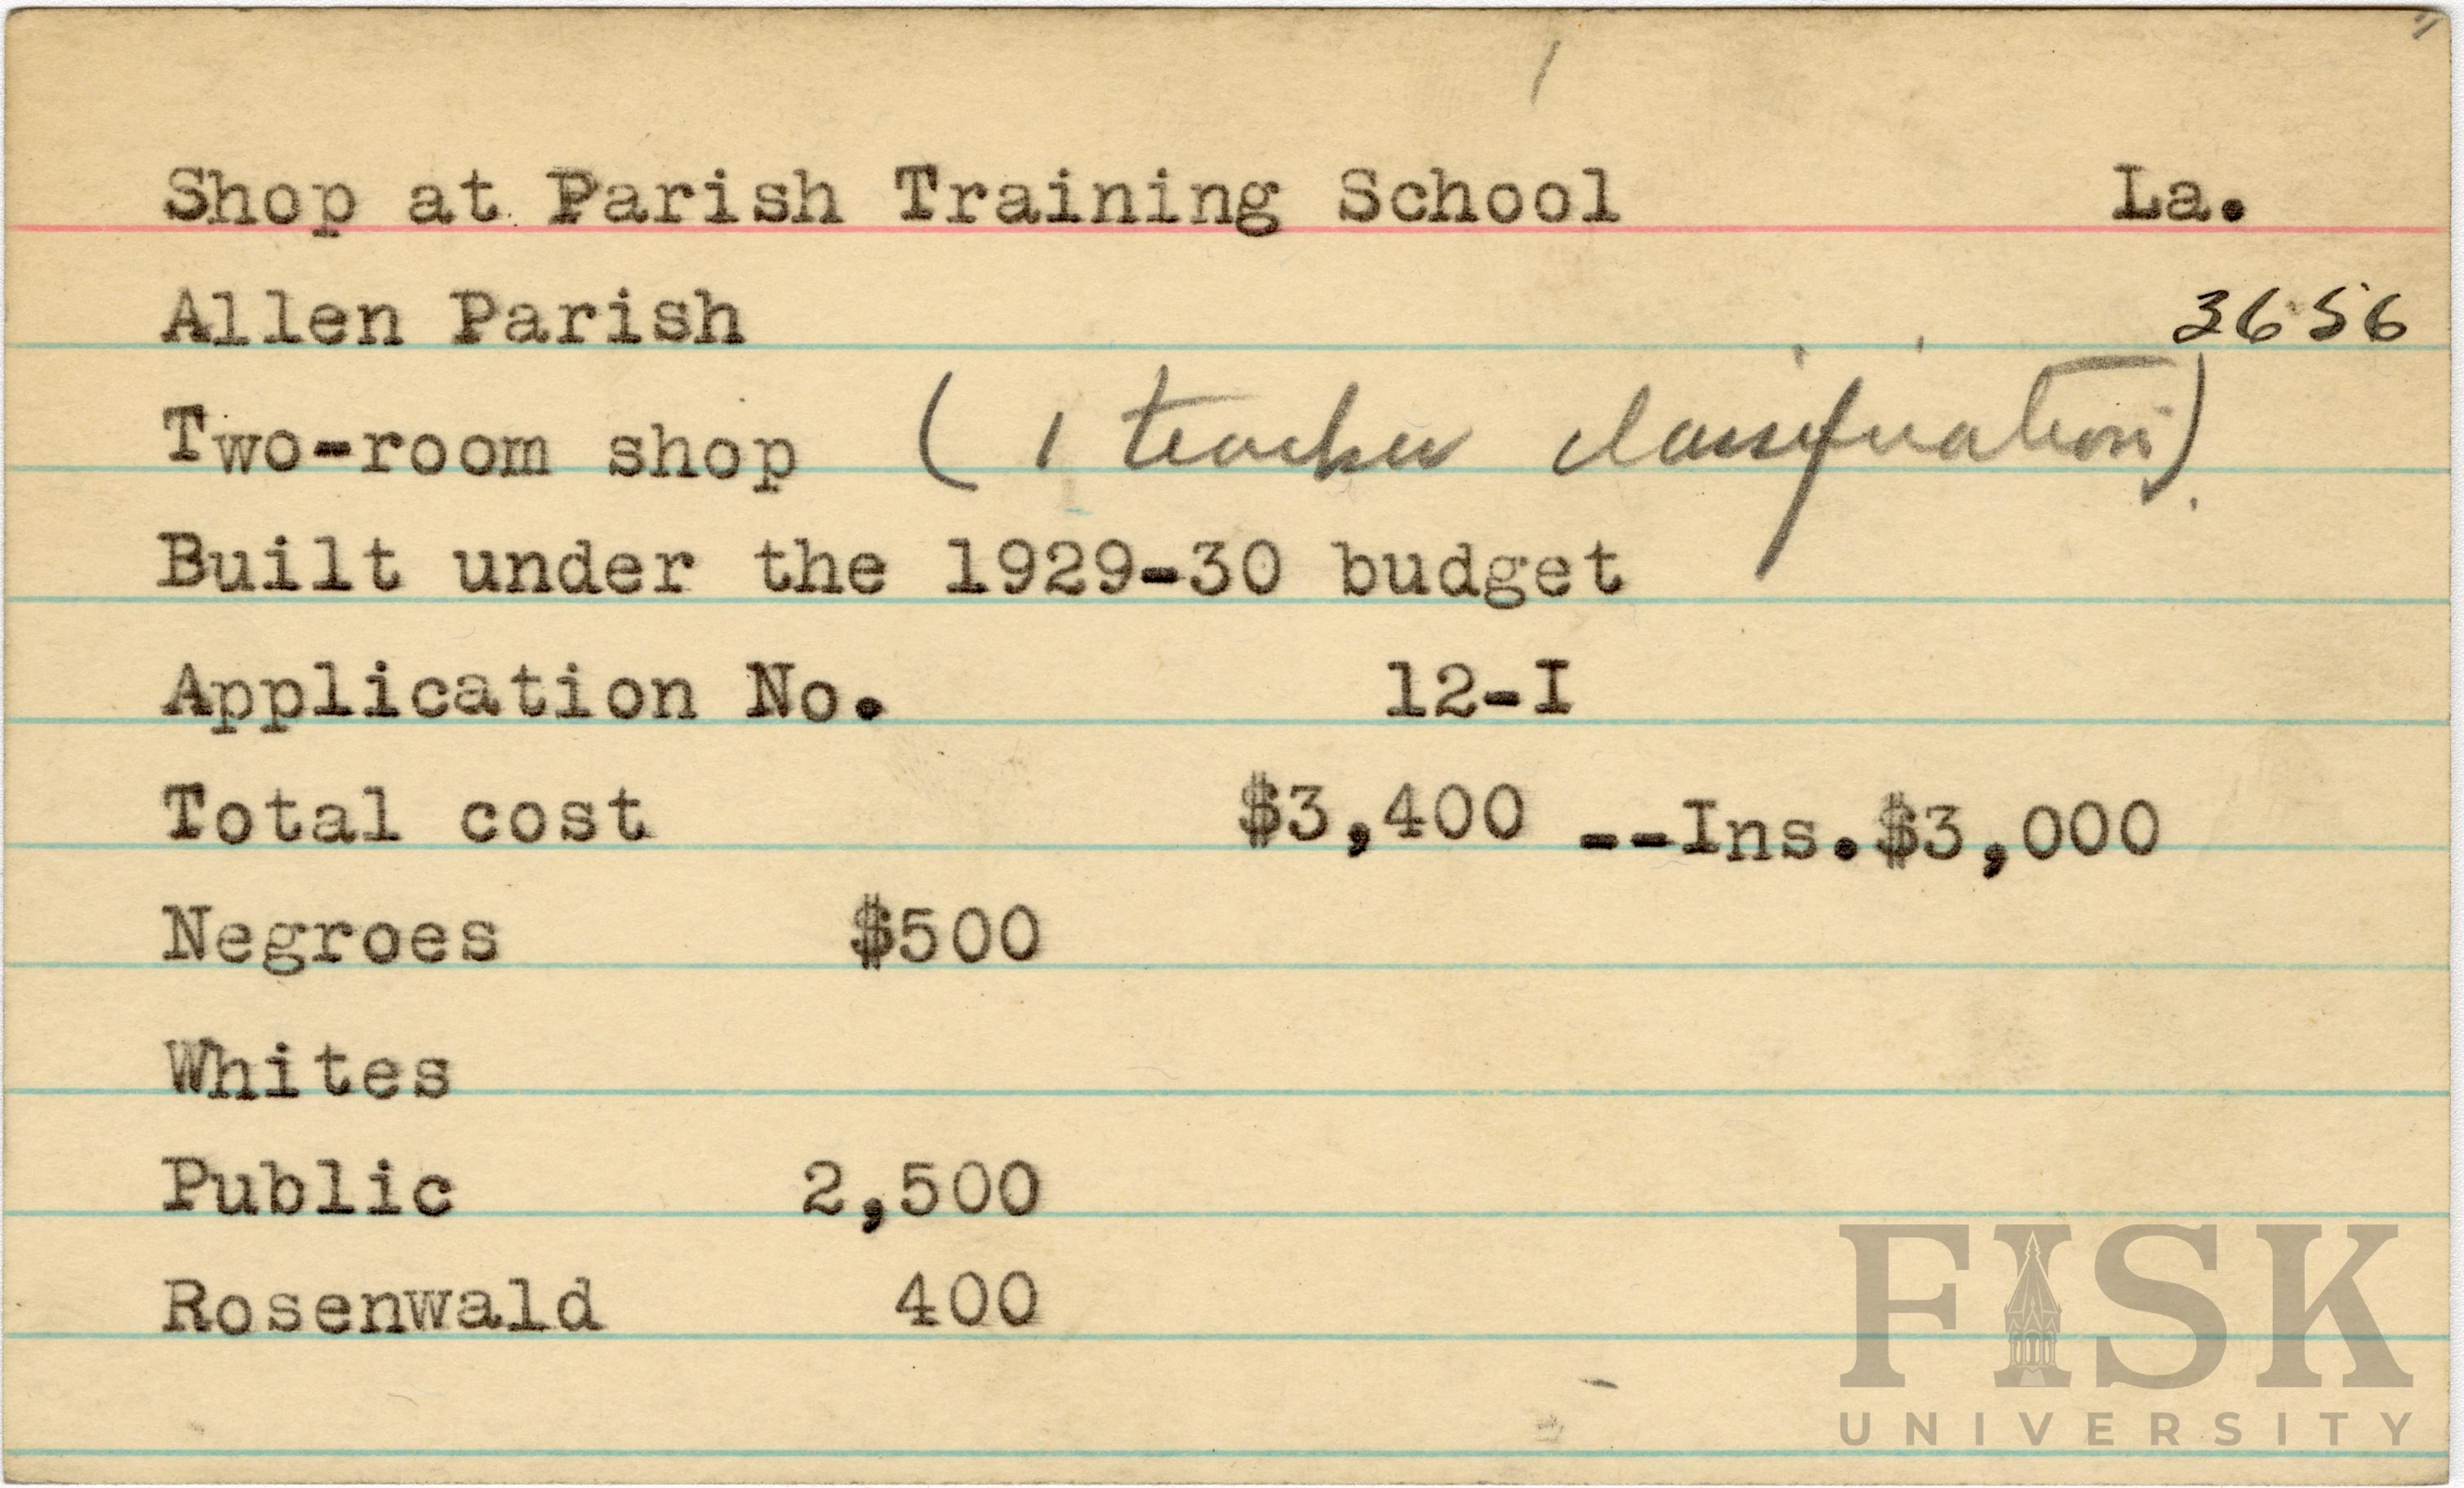 Shop at Parish Training School La.
Allen Parish 3656
Two-room shop ( 1 teacher classification)
Built under the 1929-30 budget
Application No. 12-I
Total cost $3,400 --Ins.$3,000
Negroes $500
Whites
Public 2,500
Rosenwald 400
FISK
UNIVERSITY